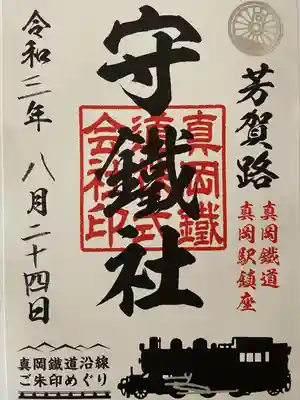 芳賀路
真岡鐵道
真岡駅鎮座
守鐵社
真岡鐵
式
会社印
令和三年 八月二十四日
真岡鐵道沿線
ご朱印めぐり